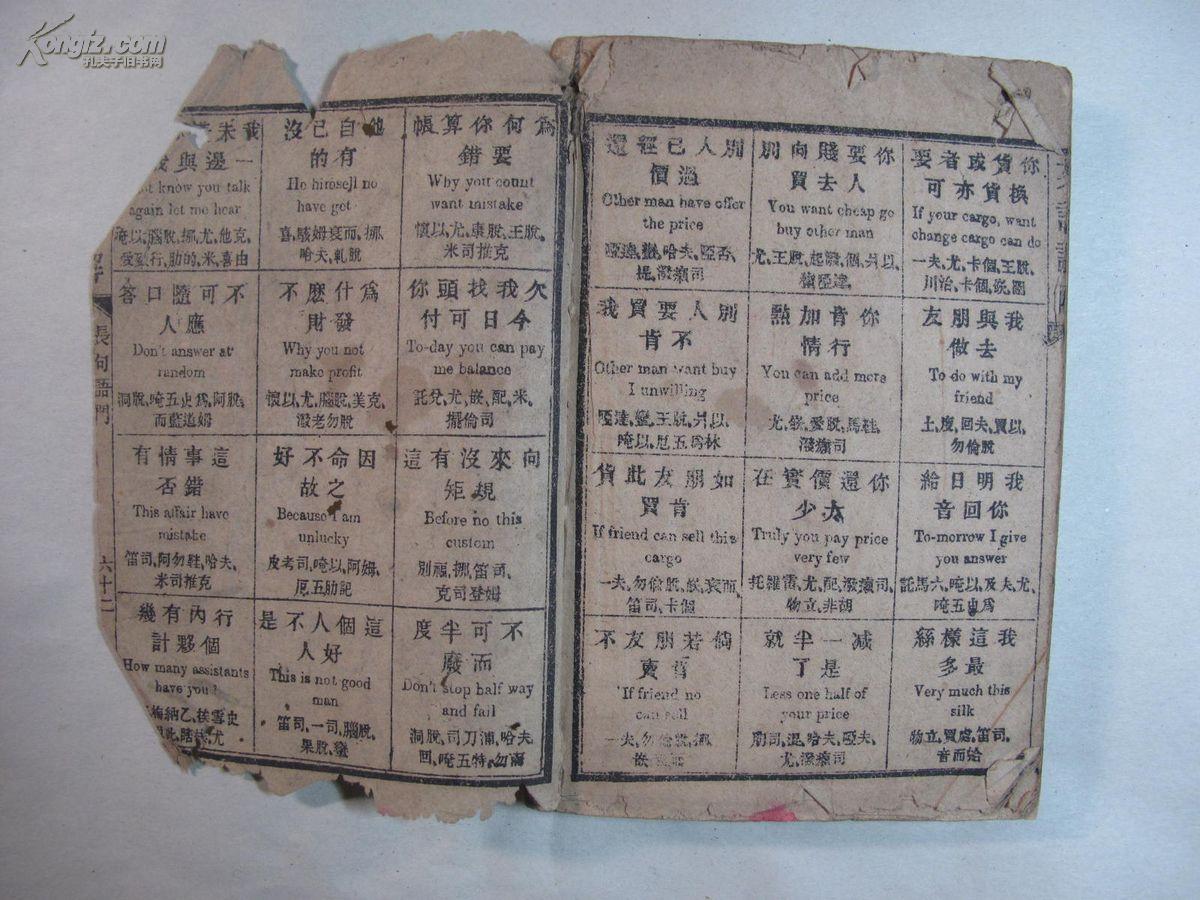 Kongfz.com
孔夫子旧书网
你貨或者要
換貨亦可
If your cargo, want
change cargo can do
一夫,尤,卡個,王脫,
川治,卡個,嵌,
你要賤向別
人去買
You want cheap go
buy other man
尤,王脫,起潑,個,
別人已經還
過價
Other man have offer
the price
哈夫,
我與朋友
去做
To do with my
friend
土,度,回夫,買以,
勿倫脫
你肯加點
行情
You can add more
price
尤,嵌,愛脫,馬鞋,
潑瀨司
別人要買我
不肯
Other man want buy
I unwilling
王脫,
唵以,厄五爲林
我明日給
你回音
To-morrow I give
you answer
託馬六,唵以,及夫,尤,
唵五史爲
你還價實在
太少
Truly you pay price
very few
托雖雷,尤,配,潑瀨司,
物立,非
如朋友此貨
肯買
If friend can sell this
cargo
一夫,勿倫脫,嵌,
笛司,卡個
我這樣絲
最多
Very much this
silk
物立,笛司,
减一半就
是了
Less one half of
your price
哈夫,
尤,潑瀨司
倘若朋友不
肯賣
If friend no
can sell
一夫,勿倫脫,
爲何你算帳
要錯
Why you count
want mistake
懷以,尤,康脫,王脫,
米司推克
他自己沒
有的
He himself no
have got
喜,哈夫,軋脫
我未
一邊與
know you talk
again let me hear
唵以,腦脫,挪,尤,他克,
肋的,米,喜由
欠我找頭你
今日可付
To-day you can pay
me balance
託兌,尤,嵌,配,米,
擺倫司
爲什麽不
發財
Why you not
make profit
懷以,尤,腦脫,美克,
潑老勿脫
不可隨口答
應人
Don't answer at
random
洞脫,唵五史爲,阿脫,
而藍道姆
向來沒有這
規矩
Before no this
custom
別福,挪,笛司,
克司登姆
因命不好
之故
Because I am
unlucky
皮考司,唵以,阿姆,
厄五肋記
這事情有
錯否
This affair have
mistake
笛司,阿勿鞋,哈夫,
米司推克
不可半度
而廢
Don't stop half way
and fail
洞脫,司刀浦,哈夫,
回,唵五特,
這個人不是
好人
This is not good
man
笛司,一司,腦脫,
果脫,蠻
行內有幾
個夥計
How many assistants
have you
長句語門
六十二